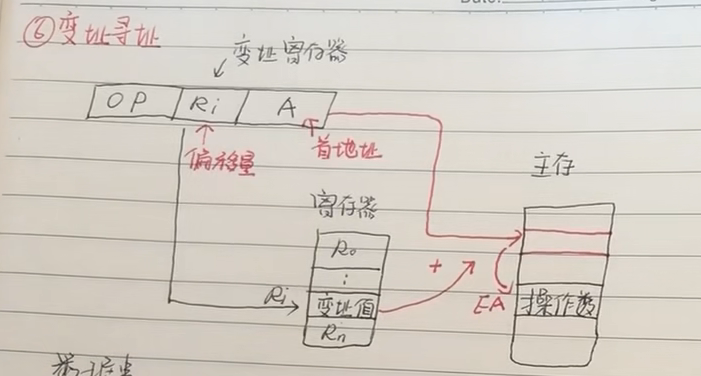 ⑥变址寻址
变址寄存器
OP Ri A
偏移量
首地址
主存
寄存器
R0
⋮
+
Ri
变址值
EA
操作数
Rn